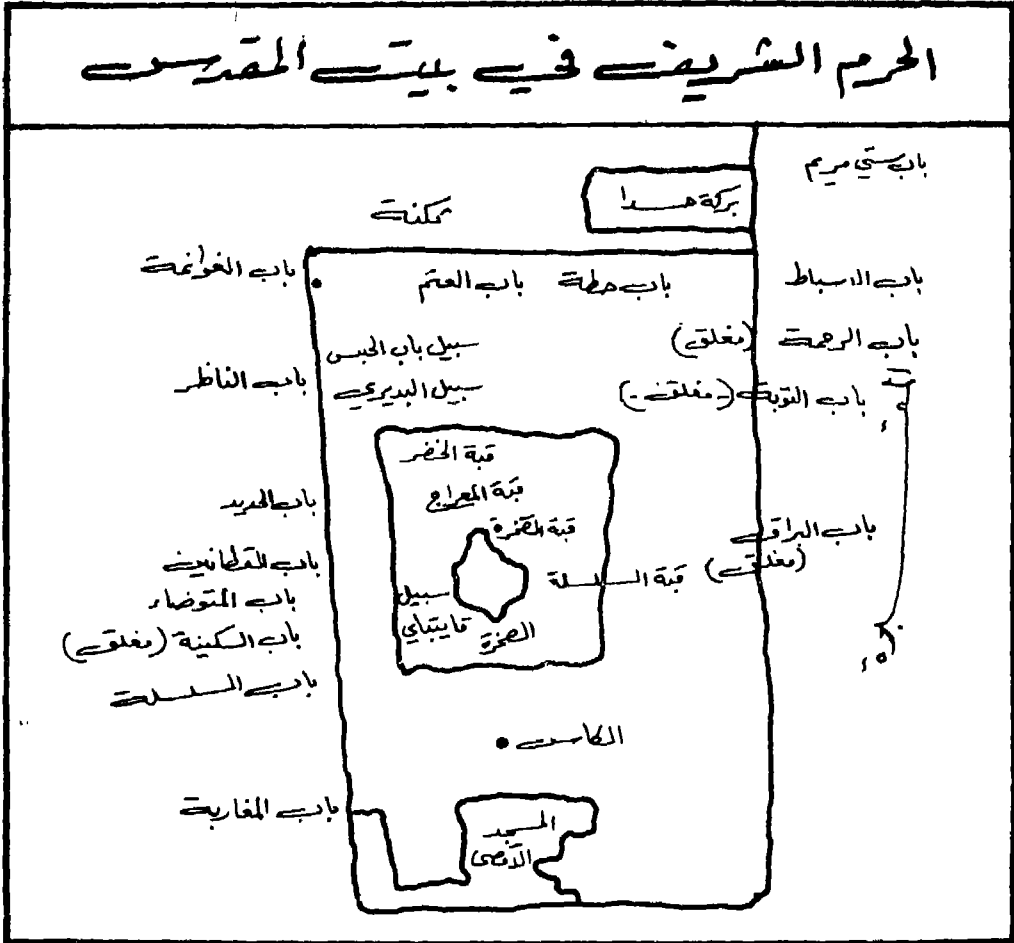 الحرم الشريف في بيت المقدس
باب ستي مريم
بركة
ثكنة
باب الغوانمة
باب العتم
باب حطة
باب الاسباط
سبيل باب الحبس
باب الرحمة (مغلق)
باب الناظر
سبيل البديري
باب التوبة (مغلق)
قبة الخضر
قبة المعراج
باب الحديد
قبة الصخرة
باب البراق
(مغلق)
باب القطانين
قبة السلسلة
باب المتوضاء
سبيل
قايتباي
الصخرة
باب السكينة (مغلق)
باب السلسلة
الكاس
باب المغاربة
المسجد
الاقصى